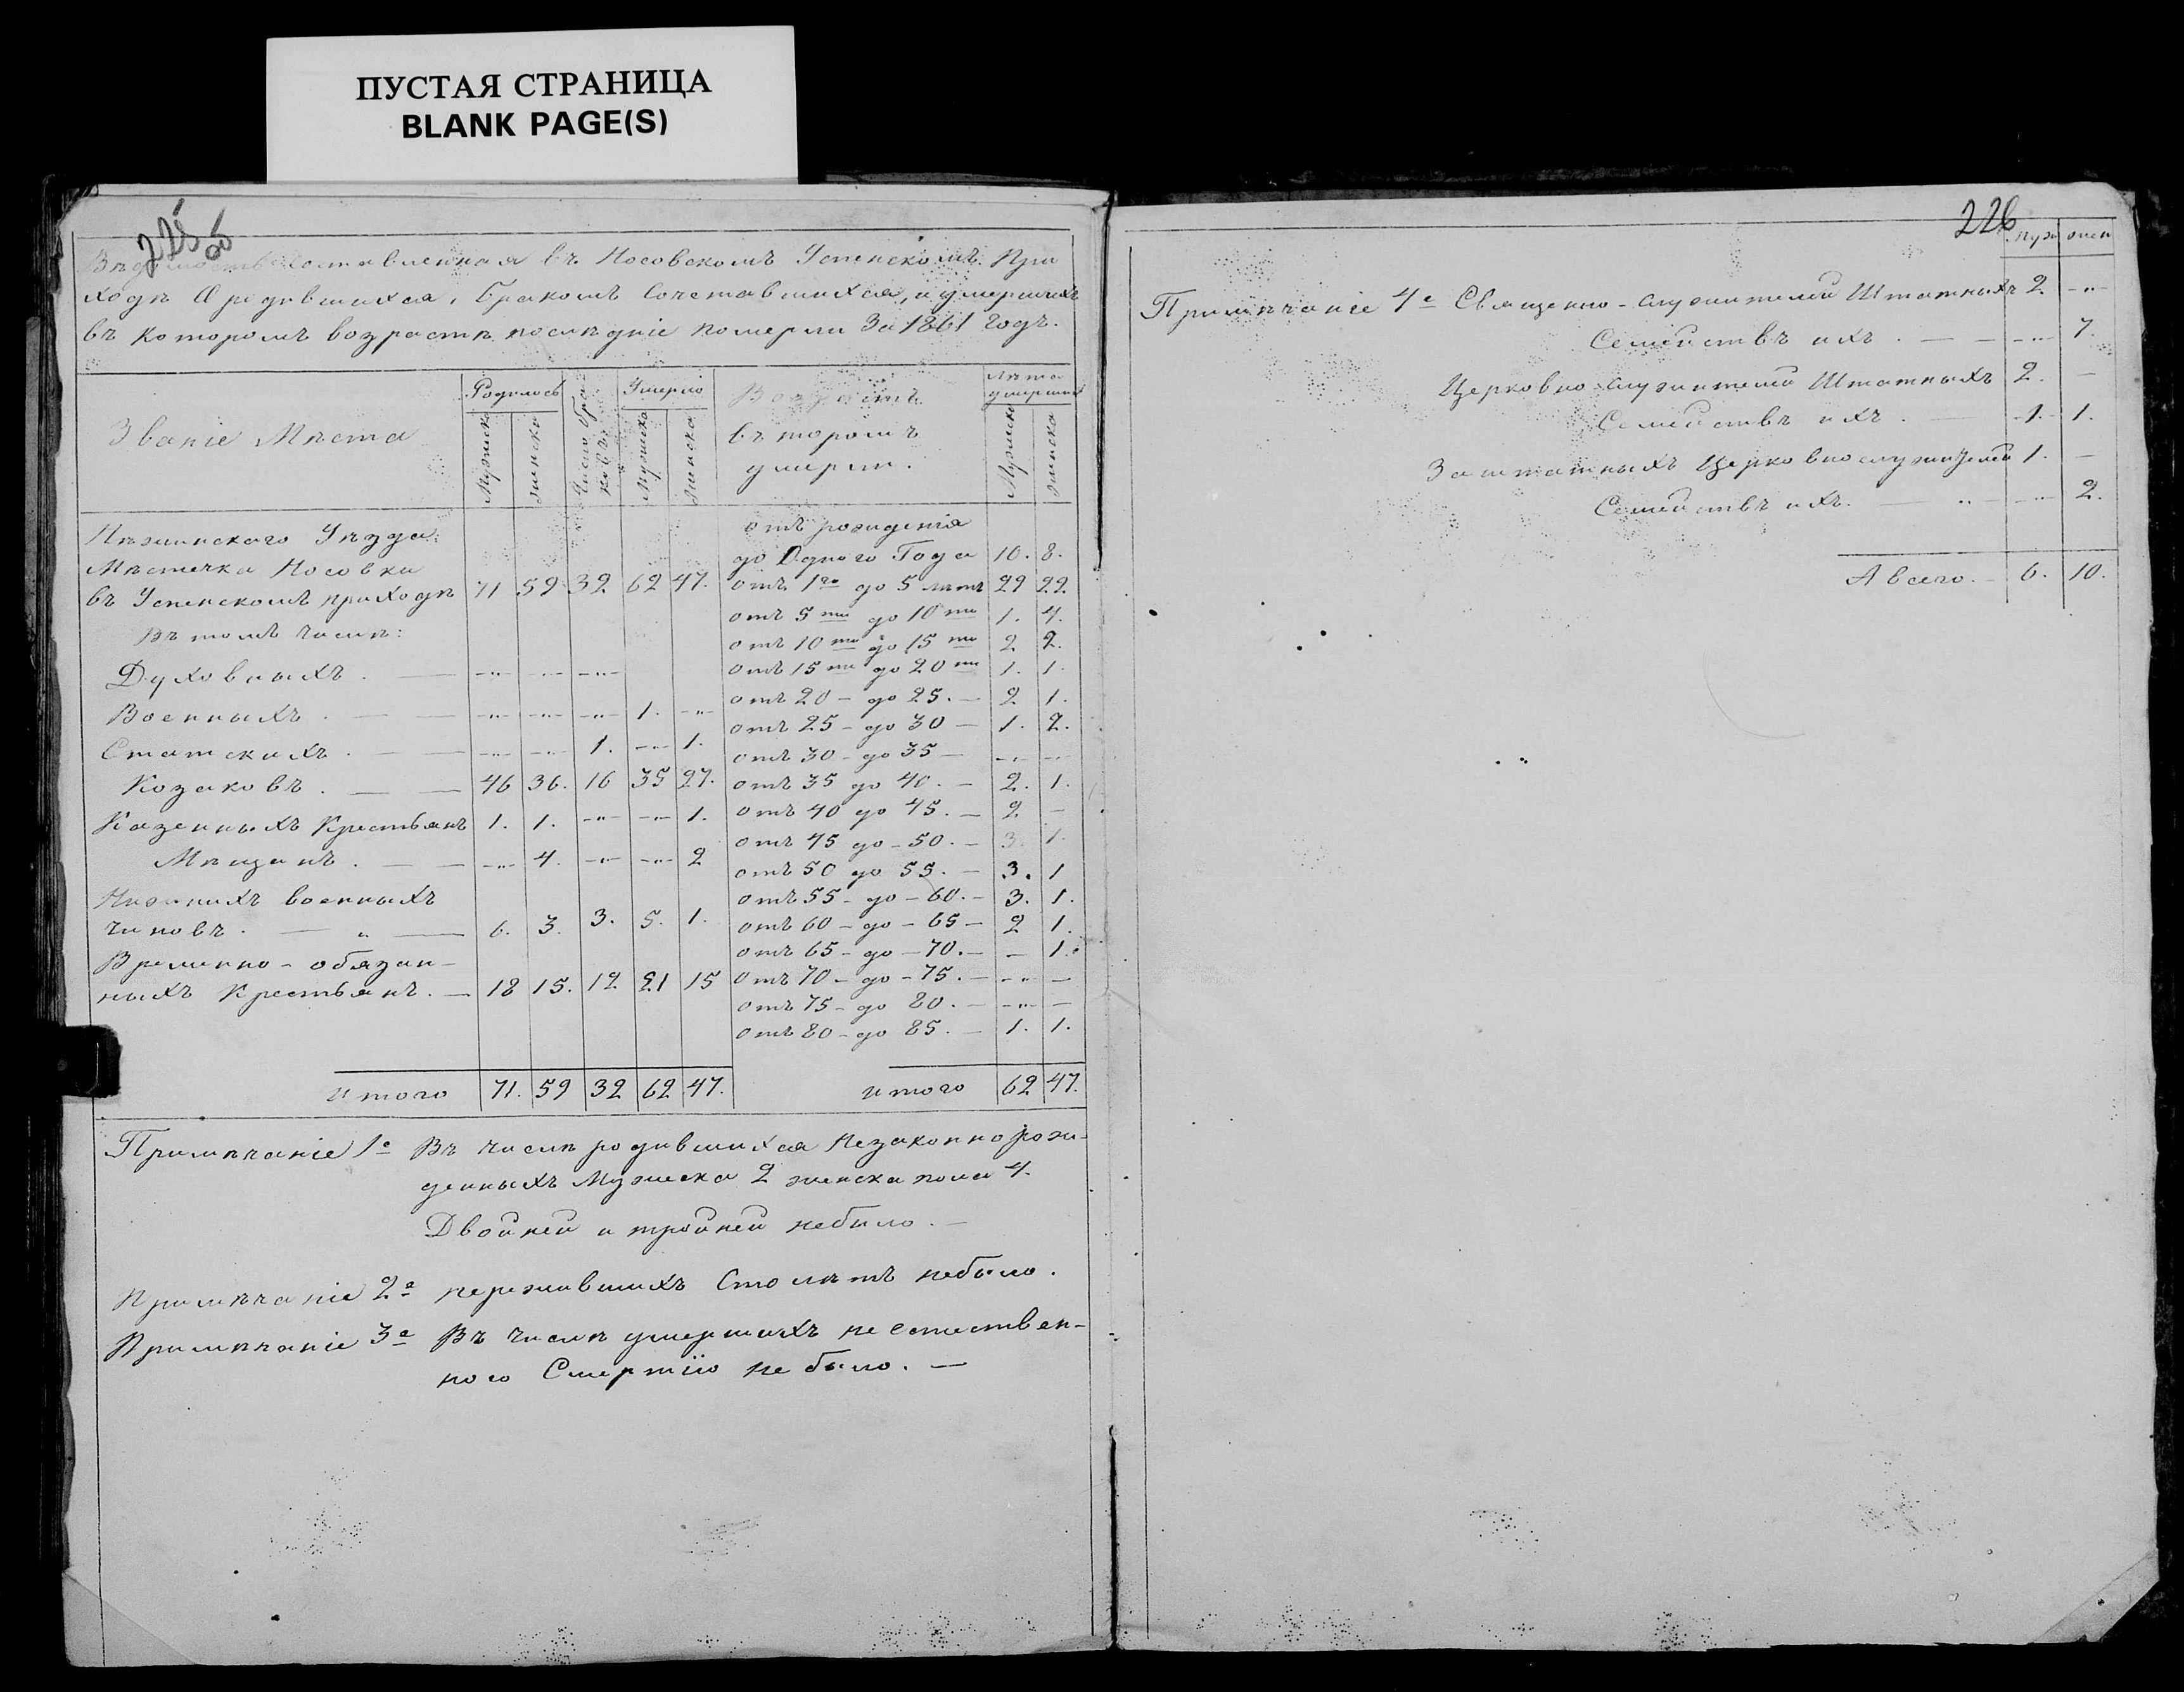 ПУСТАЯ СТРАНИЦА
BLANK PAGE(S)
225 об
Вѣдомость составленная въ Носовскомъ Успенскомъ При
ходѣ О родившихся, бракомъ Сочетавшихся, и умершихъ
въ которомъ возрастѣ послѣдніе померли За 1861 годъ.
Званіе Мѣста
Родилось
Мужска
женска
Число бра
ковъ
Умерло
Мужска
женска
Возрастъ
въ торомъ
умерли.
Лѣта
умершихъ
Мужска
женска
Нѣжинскаго Уѣзда
Мѣстечка Носовки
въ Успенскомъ приходѣ 71 59 32 62 47.
Въ томъ числѣ:
Духовныхъ . — -"- -"- -"-
Военныхъ . — — -"- -"- -"- 1. -"-
Статскихъ . — — -"- -"- 1. -"- 1.
Козаковъ . — — 46 36. 16 35 27.
Казенныхъ Крестьянъ 1. 1. -"- -"- 1.
Мѣщанъ . — — -"- 4. -"- -"- 2
Нижнихъ военныхъ
чиновъ . — " — 6. 3. 3. 5. 1.
Временно-обязан-
ныхъ Крестьянъ. — 18 15. 12. 21 15
Итого 71. 59 32 62 47.
отъ рожденія
до Одного Года 10. 8.
отъ 1го до 5 лѣтъ 29 22.
отъ 5ти до 10ти 1. 4.
отъ 10ти до 15ти 2 2.
отъ 15ти до 20ти 1. 1.
отъ 20 – до 25. – 2 1.
отъ 25 – до 30 – 1. 2.
отъ 30 – до 35 – -"- -"-
отъ 35 до 40. – 2. 1.
отъ 40 до 45. – 2 –
отъ 45 до – 50. – 3. 1.
отъ 50 до 55. – 3. 1
отъ 55 – до – 60. – 3. 1.
отъ 60 – до – 65 – 2 1.
отъ 65 – до – 70. – – 1.
отъ 70 – до – 75. – -"- –
отъ 75 – до 80. – -"- –
отъ 80 – до 85. – 1. 1.
итого 62 47.
Примѣчаніе 1е Въ числѣ родившихся Незаконнорож-
денныхъ Мужеска 2 женска пола 4.
Двойней и тройней небыло. —
Примѣчаніе 2е пережившихъ Сто лѣтъ небыло.
Примѣчаніе 3е Въ числѣ умершихъ не естествен-
ною Смертію не было. —
226
муж жен
Примѣчаніе 4е Священно-служителей Штатныхъ 2. -"-
Семействъ ихъ . — — -"- 7.
Церковно-служителей Штатныхъ 2. —
Семействъ ихъ . — 1. 1.
Заштатныхъ Церковнослужителей 1. —
Семействъ ихъ. — " — -"- 2.
А всего. – 6. 10.